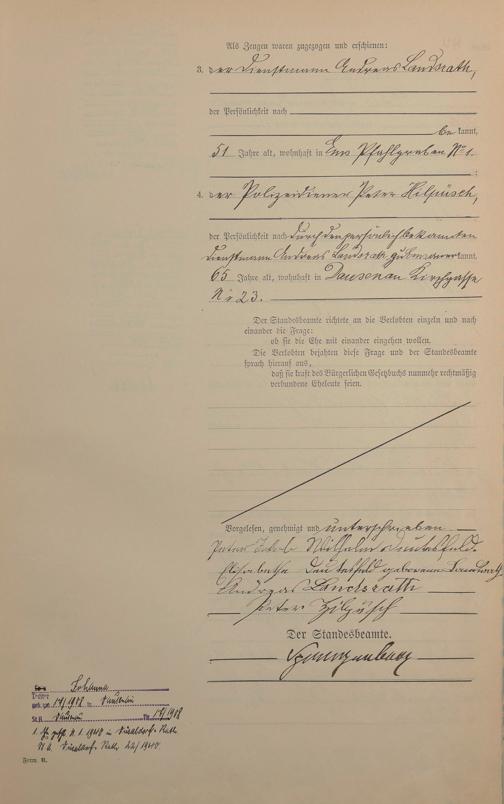 Als Zeugen waren zugezogen und erschienen:
3. der Dienstmann Andreas Landsrath,
der Persönlichkeit nach
be kannt,
51 Jahre alt, wohnhaft in Ems Pfahlgraben No 1.
4. der Polizeidiener Peter Hilpüsch,
der Persönlichkeit nach durch den persönlich bekannten
Dienstmann Andreas Landsrath kannt,
65 Jahre alt, wohnhaft in Dausenau Kirchgasse
No 23.
Der Standesbeamte richtete an die Verlobten einzeln und nach
einander die Frage:
ob sie die Ehe mit einander eingehen wollen.
Die Verlobten bejahten diese Frage und der Standesbeamte
sprach hierauf aus,
daß sie kraft des Bürgerlichen Gesetzbuchs nunmehr rechtmäßig
verbundene Eheleute seien.
Vorgelesen, genehmigt und unterschrieben
Peter Jakob Wilhelm
Elisabetha geborene Landsrath
Andreas Landsrath
Peter Hilpüsch
Der Standesbeamte.
in
St. A.
1940 in
Form. B.